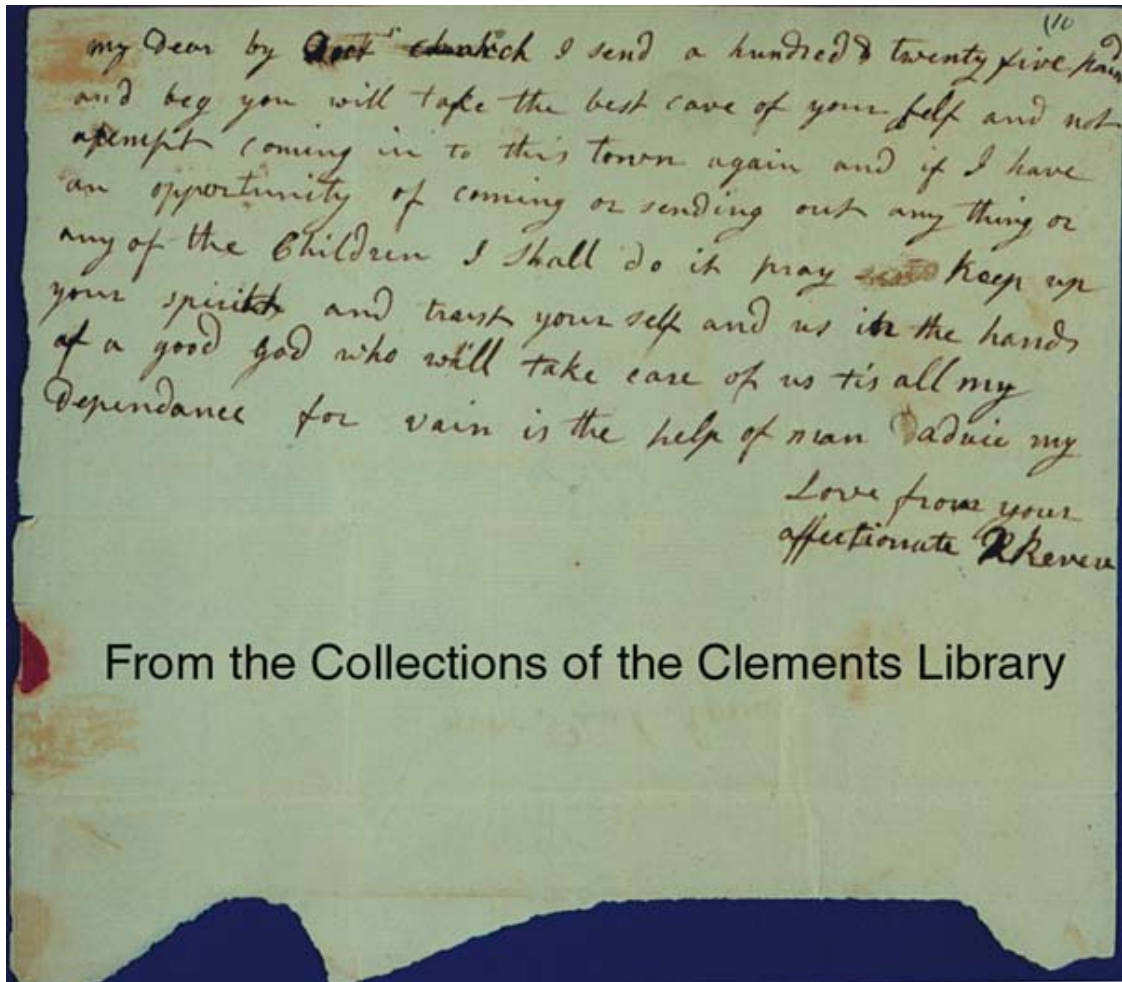 (10
my Dear by Doctr church I send a hundred & twenty five pound
and beg you will take the best care of your self and not
atempt coming in to this town again and if I have
an opportunity of coming or sending out any thing or
any of the Children I shall do it pray keep up
your spirits and trust your self and us in the hands
of a good god who will take care of us tis all my
Dependance for vain is the help of man adieu my
Love from your
affectionate R Revere
From the Collections of the Clements Library